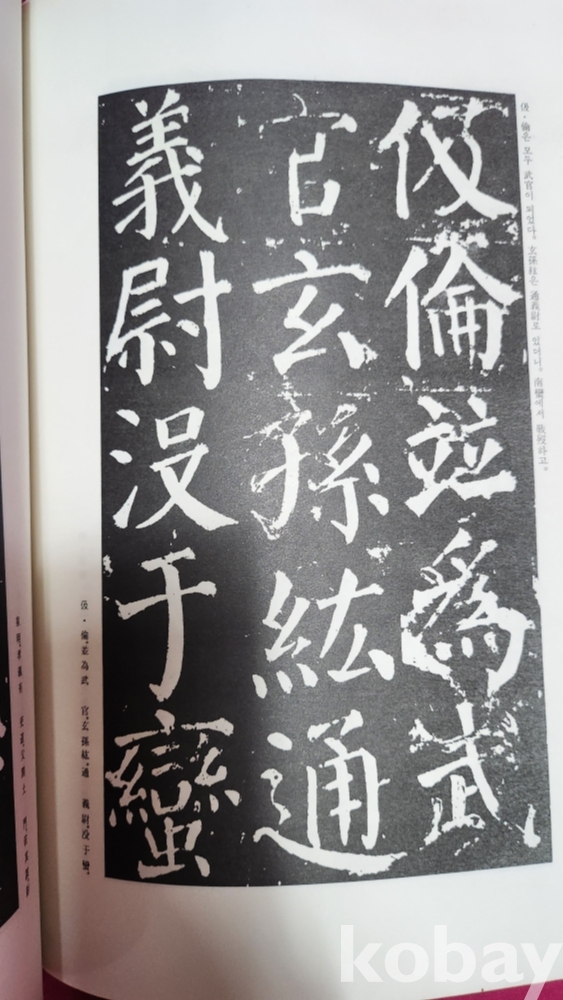 伋倫並為武
官玄孫紘通
義尉没于蠻
伋·倫은 모두 武官이 되었다。玄孫紘은 通義尉로 있더니。南蠻에서 戰歿하고。
伋·倫、並為武 官、玄孫紘、通 義尉、没于蠻、
kobay